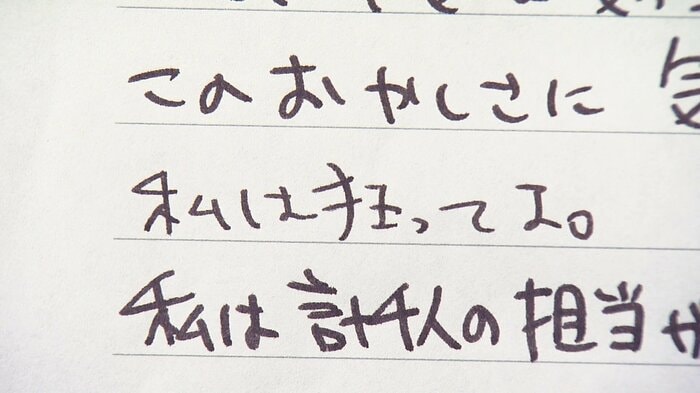 このおかしさに 気
私は狂ってエ。
私は計4人の担当か